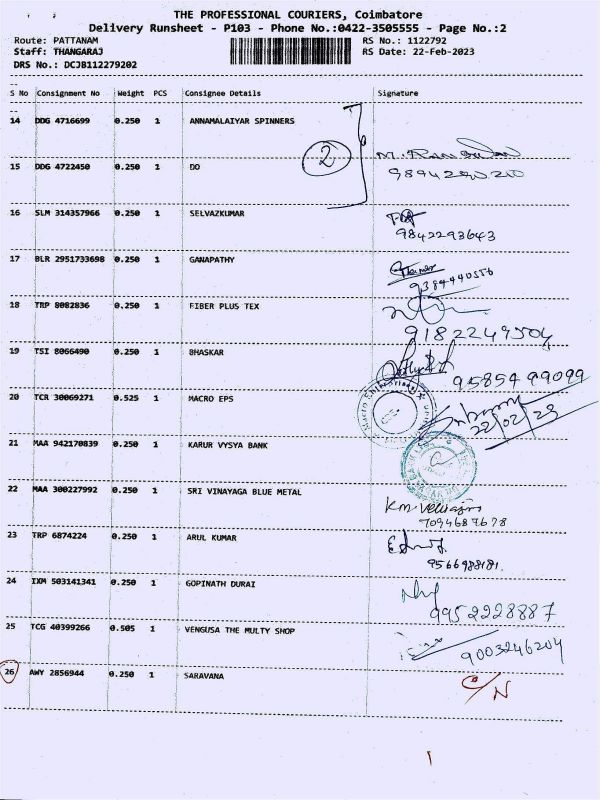 THE PROFESSIONAL COURIERS, Coimbatore
Delivery Runsheet - P103 - Phone No.:0422-3505555 - Page No.:2
Route: PATTANAM RS No.: 1122792
Staff: THANGARAJ RS Date: 22-Feb-2023
DRS No.: DCJB112279202
S No Consignment No Weight PCS Consignee Details Signature
14 DDG 4716699 0.250 1 ANNAMALAIYAR SPINNERS
2
15 DDG 4722450 0.250 1 DO
9894290200
16 SLM 314357966 0.250 1 SELVAZKUMAR
9842293643
17 BLR 2951733698 0.250 1 GANAPATHY
9384440556
18 TRP 8082836 0.250 1 FIBER PLUS TEX
9182249504
19 TSI 8066490 0.250 1 BHASKAR
9585499099
20 TCR 30069271 0.525 1 MACRO EPS
22/02/23
21 MAA 942170839 0.250 1 KARUR VYSYA BANK
22 MAA 300227992 0.250 1 SRI VINAYAGA BLUE METAL
7094687678
23 TRP 6874224 0.250 1 ARUL KUMAR
9566988181.
24 IXM 503141341 0.250 1 GOPINATH DURAI
9952228887
25 TCG 40399266 0.505 1 VENGUSA THE MULTY SHOP
9003246204
26 AWY 2856944 0.250 1 SARAVANA
C/N